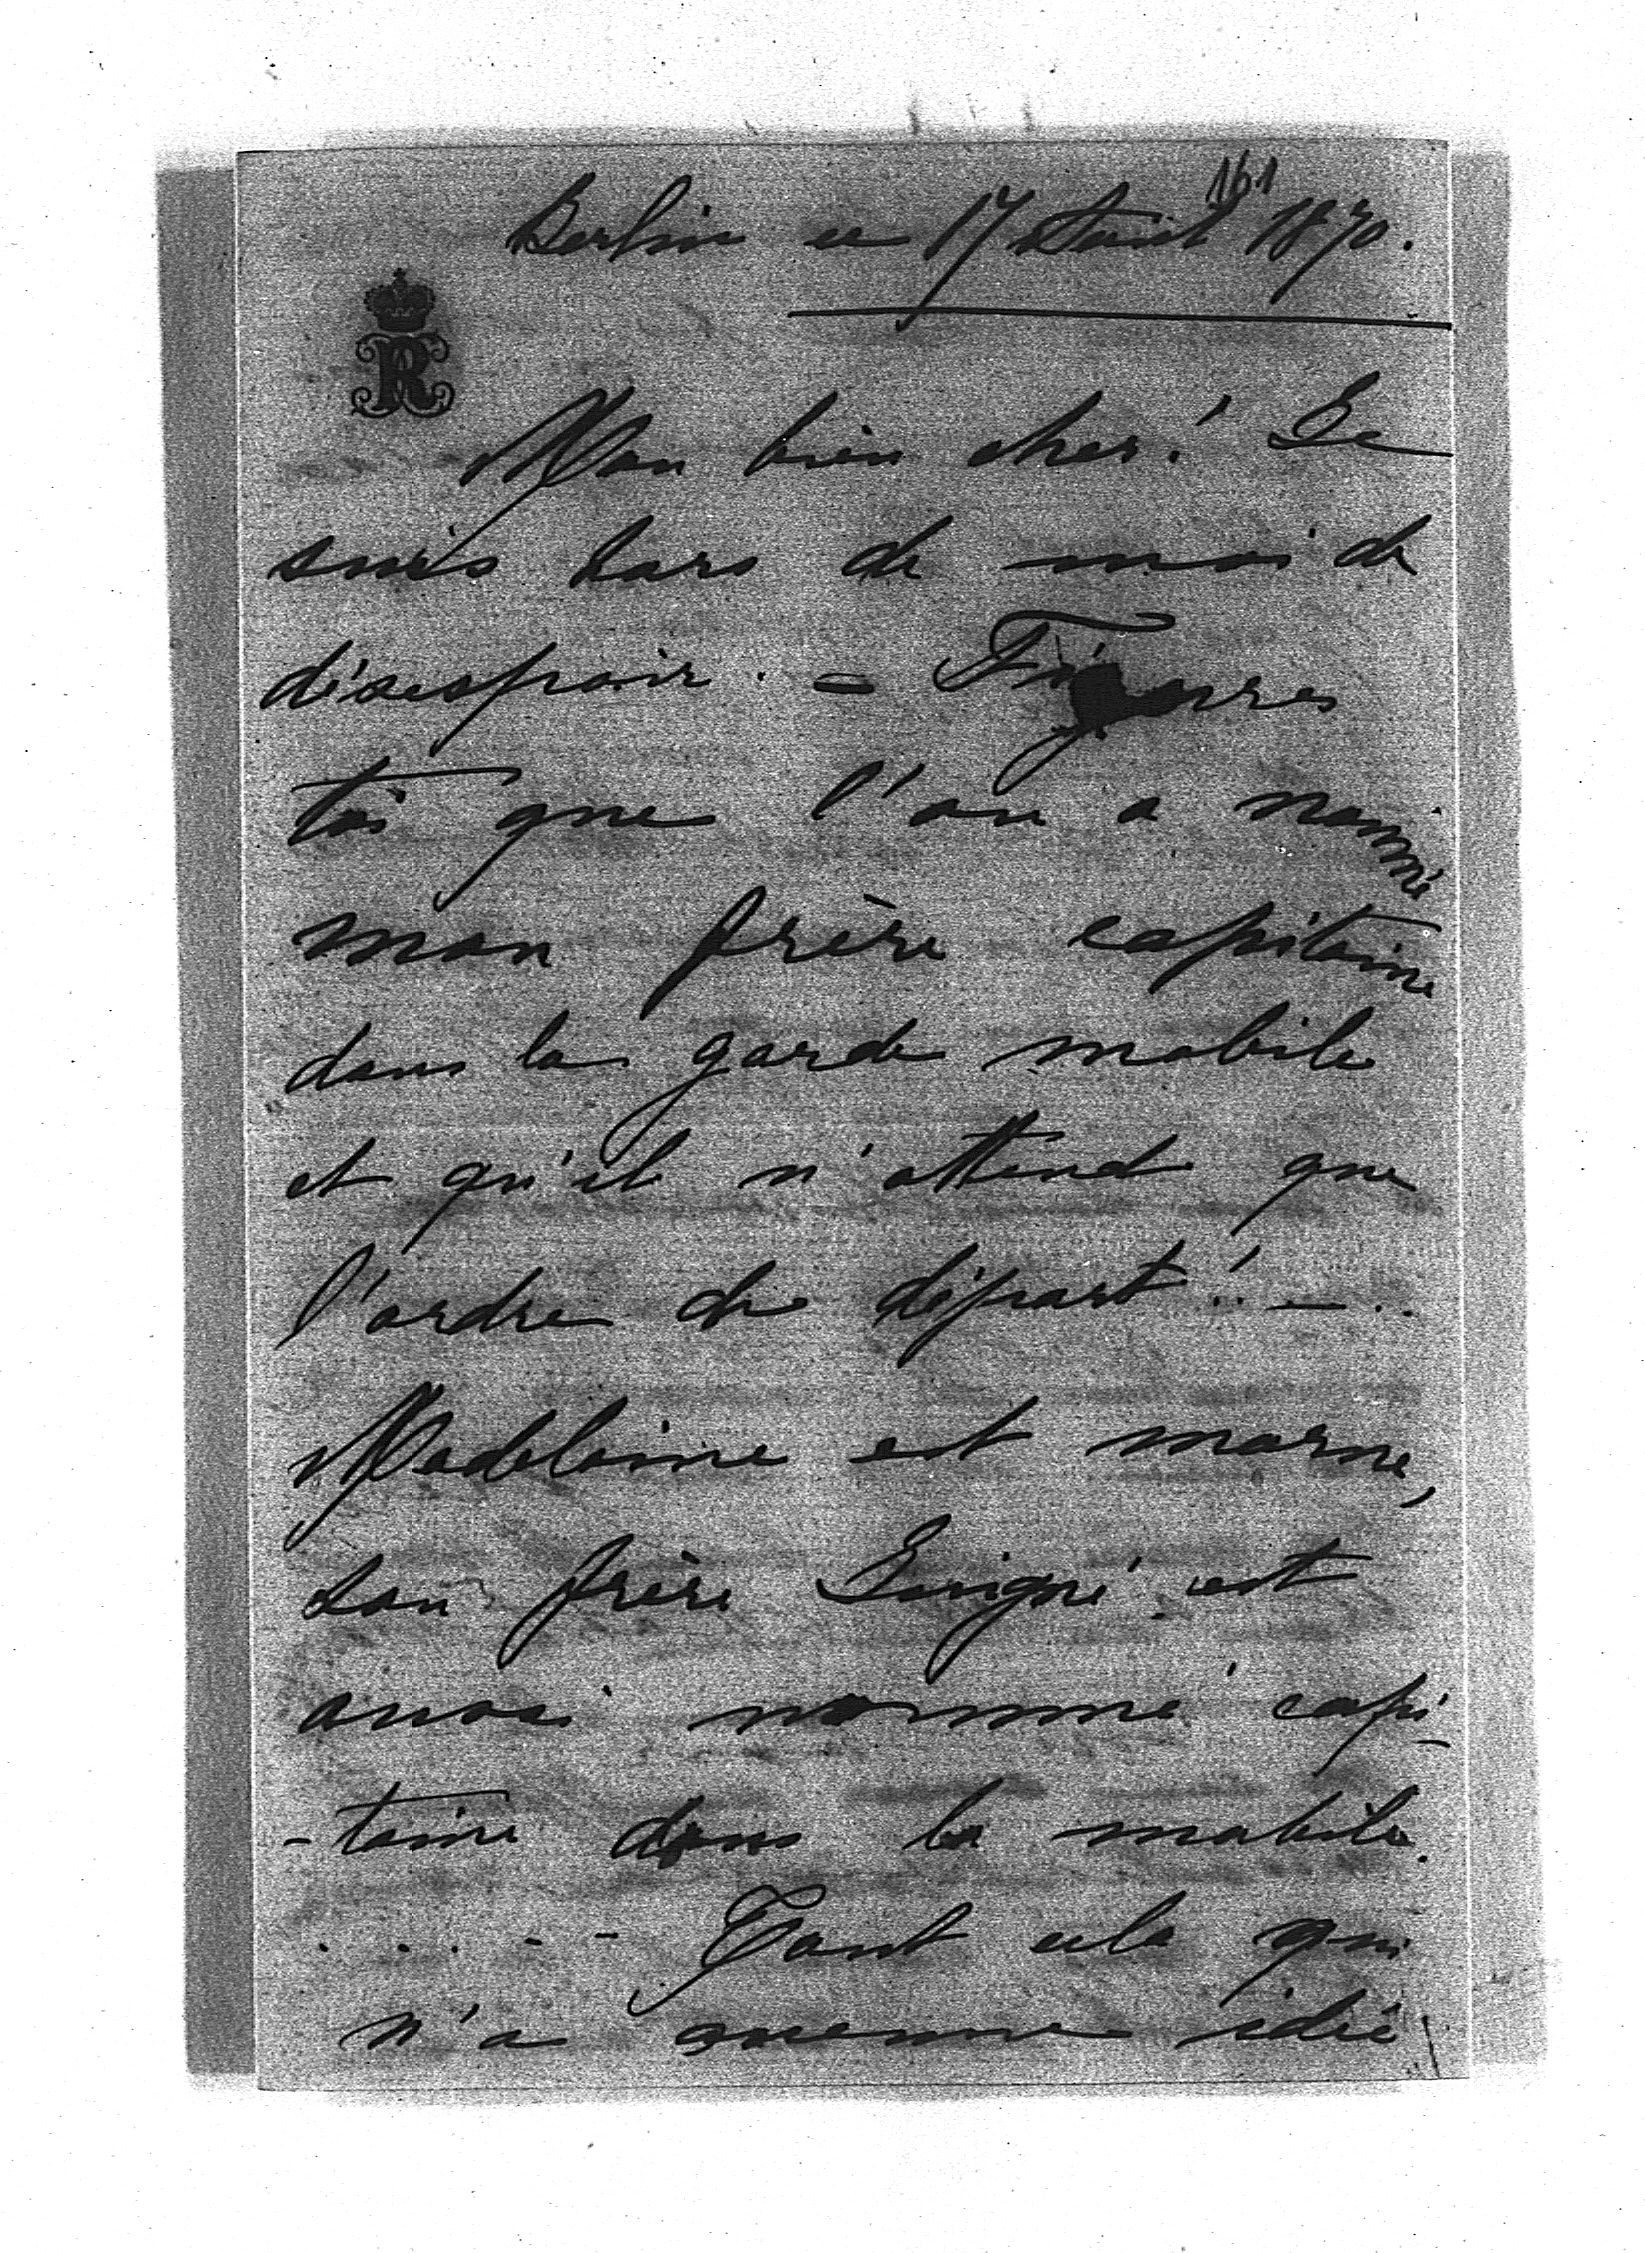 161
Berlin ce 17 Août 1870.
R
Mon bien cher! Je
suis hors de moi de
désespoir. = Figures
toi que l'on a nommé
mon frère capitaine
dans la garde mobile
et qu'il n'attend que
l'ordre de départ! . — . .
Madeleine est morne,
son frère est
aussi nommé capi-
-taine dans la mobile.
. . . - - Tout cela qui
n'a aucune idée